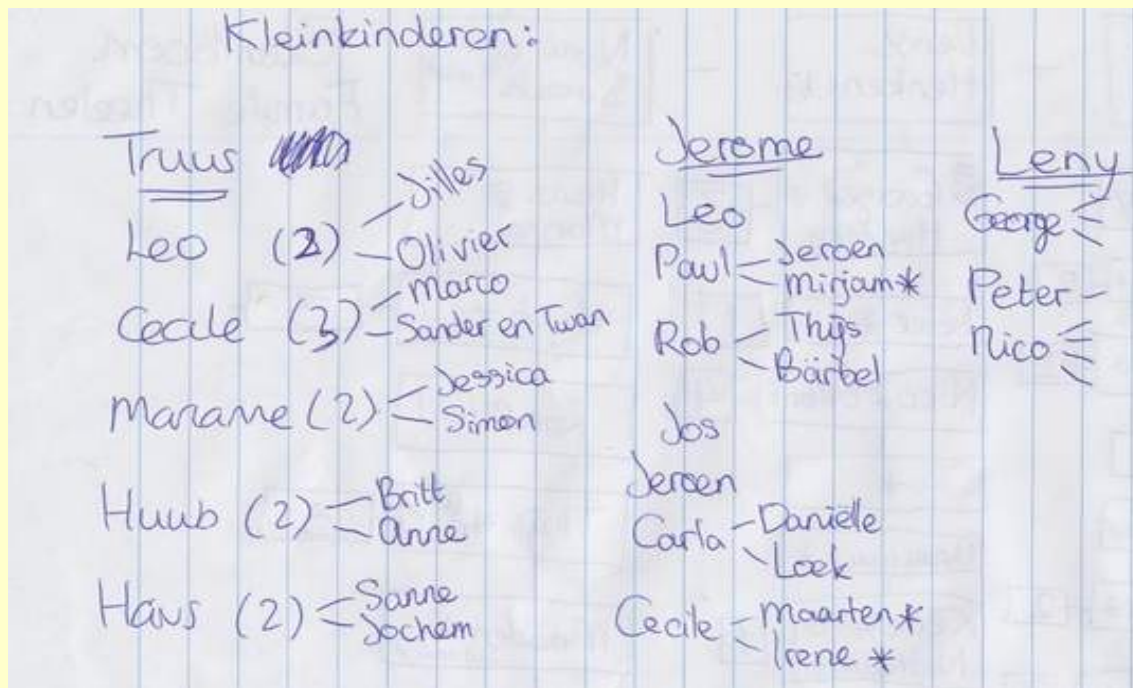 Kleinkinderen:
Truus
Leo (2) Jilles
Olivier
Cecile (3) Marco
Sander en Twan
Marianne (2) Jessica
Simon
Huub (2) Britt
Anne
Hans (2) Sanne
Jochem
Jerome
Leo
Paul Jeroen
Mirjam*
Rob Thijs
Bärbel
Jos
Jeroen
Carla Daniëlle
Loek
Cecile Maarten*
Irene *
Leny
George
Peter
Nico